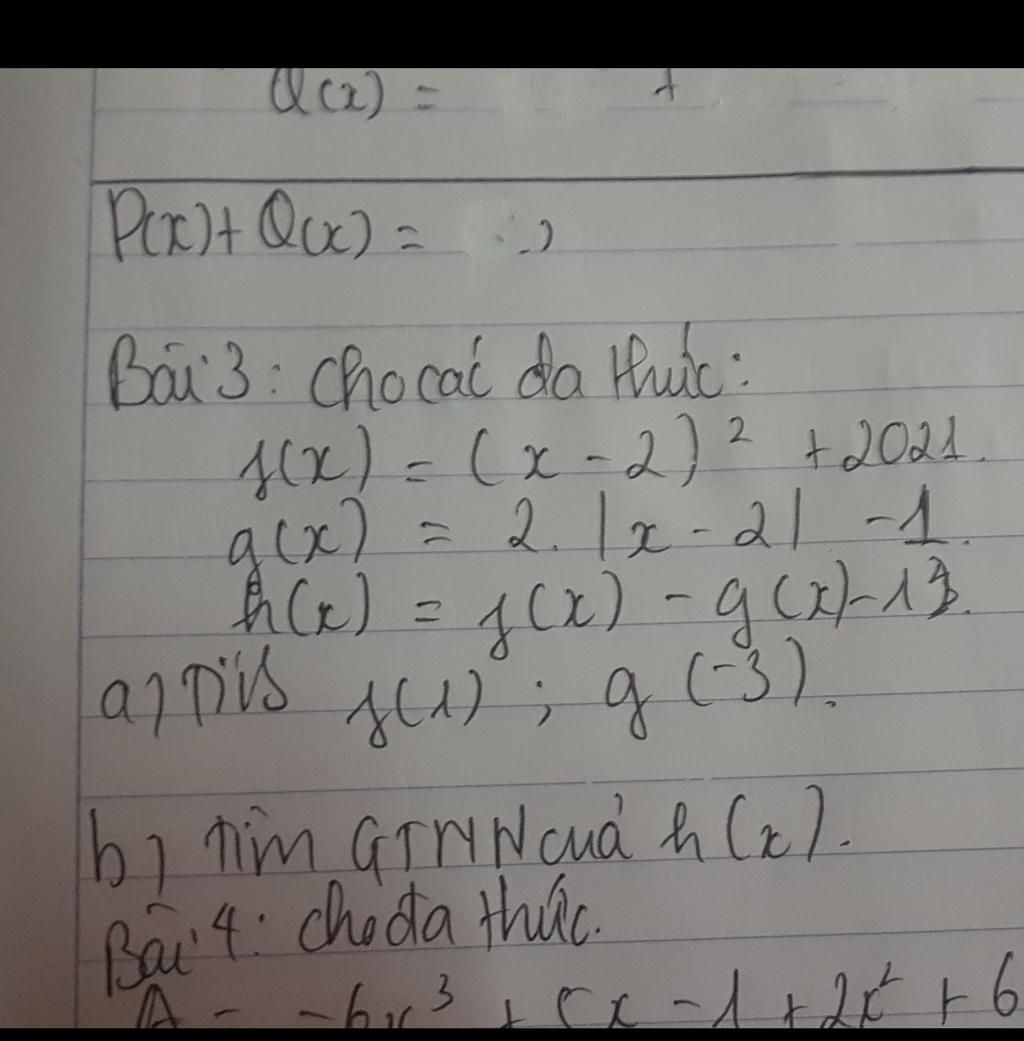 Q(x) = +
P(x) + Q(x) =
Bài 3: Cho các đa thức:
f(x) = (x - 2)² + 2021.
g(x) = 2. |x - 2| - 1.
h(x) = f(x) - g(x) -
a) f(1) ; g(-3).
b) Tìm GTNN của h(x).
Bài 4: Cho đa thức.
A = -6x³ + 5x - 1 + 2x² + 6